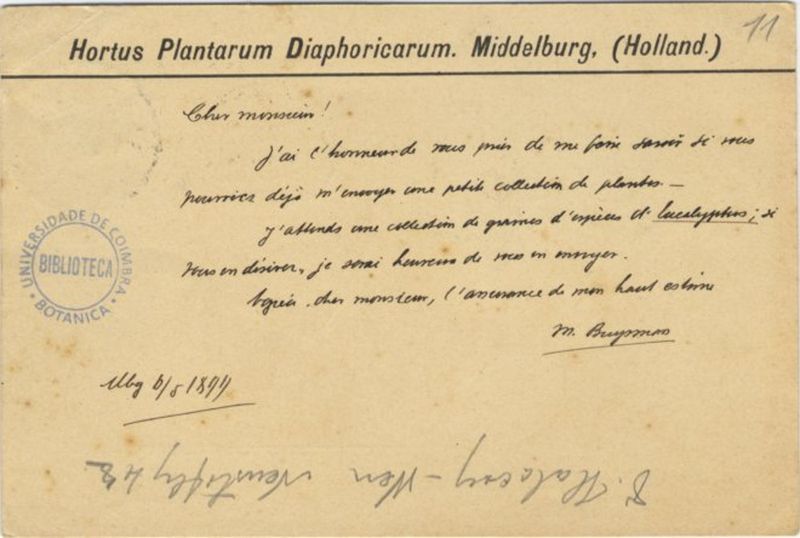 11
Hortus Plantarum Diaphoricarum. Middelburg, (Holland.)
Cher monsieur!
J'ai l'honneur de vous prier de me faire savoir si vous
pourriez déjà m'envoyer une petite collection de plantes. —
J'attends une collection de graines d'espèces d'Eucalyptus; si
vous en désirez, je serai heureux de vous en envoyer.
Agréez, cher monsieur, l'assurance de mon haut estime
M. Buysman
UNIVERSIDADE DE COIMBRA
BIBLIOTECA
BOTANICA
Mbg 6/8 1899
Halacsy — Wien